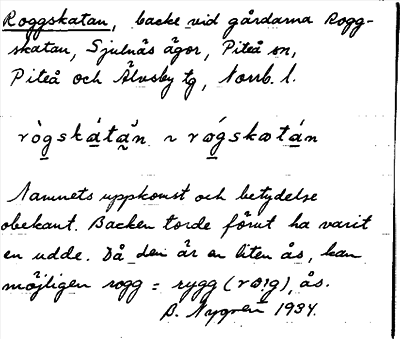 Roggskatan, backe vid gårdarna Rogg-
skatan, Sjulnäs ägor, Piteå sn,
Piteå och Älvsby tg, Norrb. l.
rògskátan ~ rógskatán
Namnets uppkomst och betydelse
obekant. Backen torde förut ha varit
en udde. Då den är en liten ås, kan
möjligen rogg = rygg (rœ:g), ås.
B. Nygren 1934.